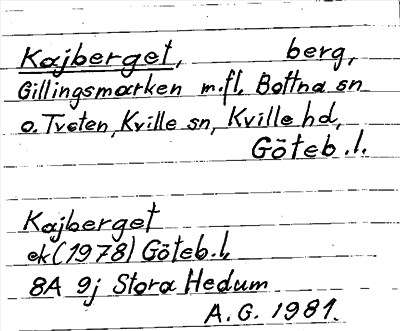 Kajberget, berg,
Gillingsmarken m.fl. Bottna sn
o. Tveten, Kville sn, Kville hd,
Göteb.l.
Kajberget
ek (1978) Göteb.l,
8A 9j Stora Hedum
A.G. 1981.